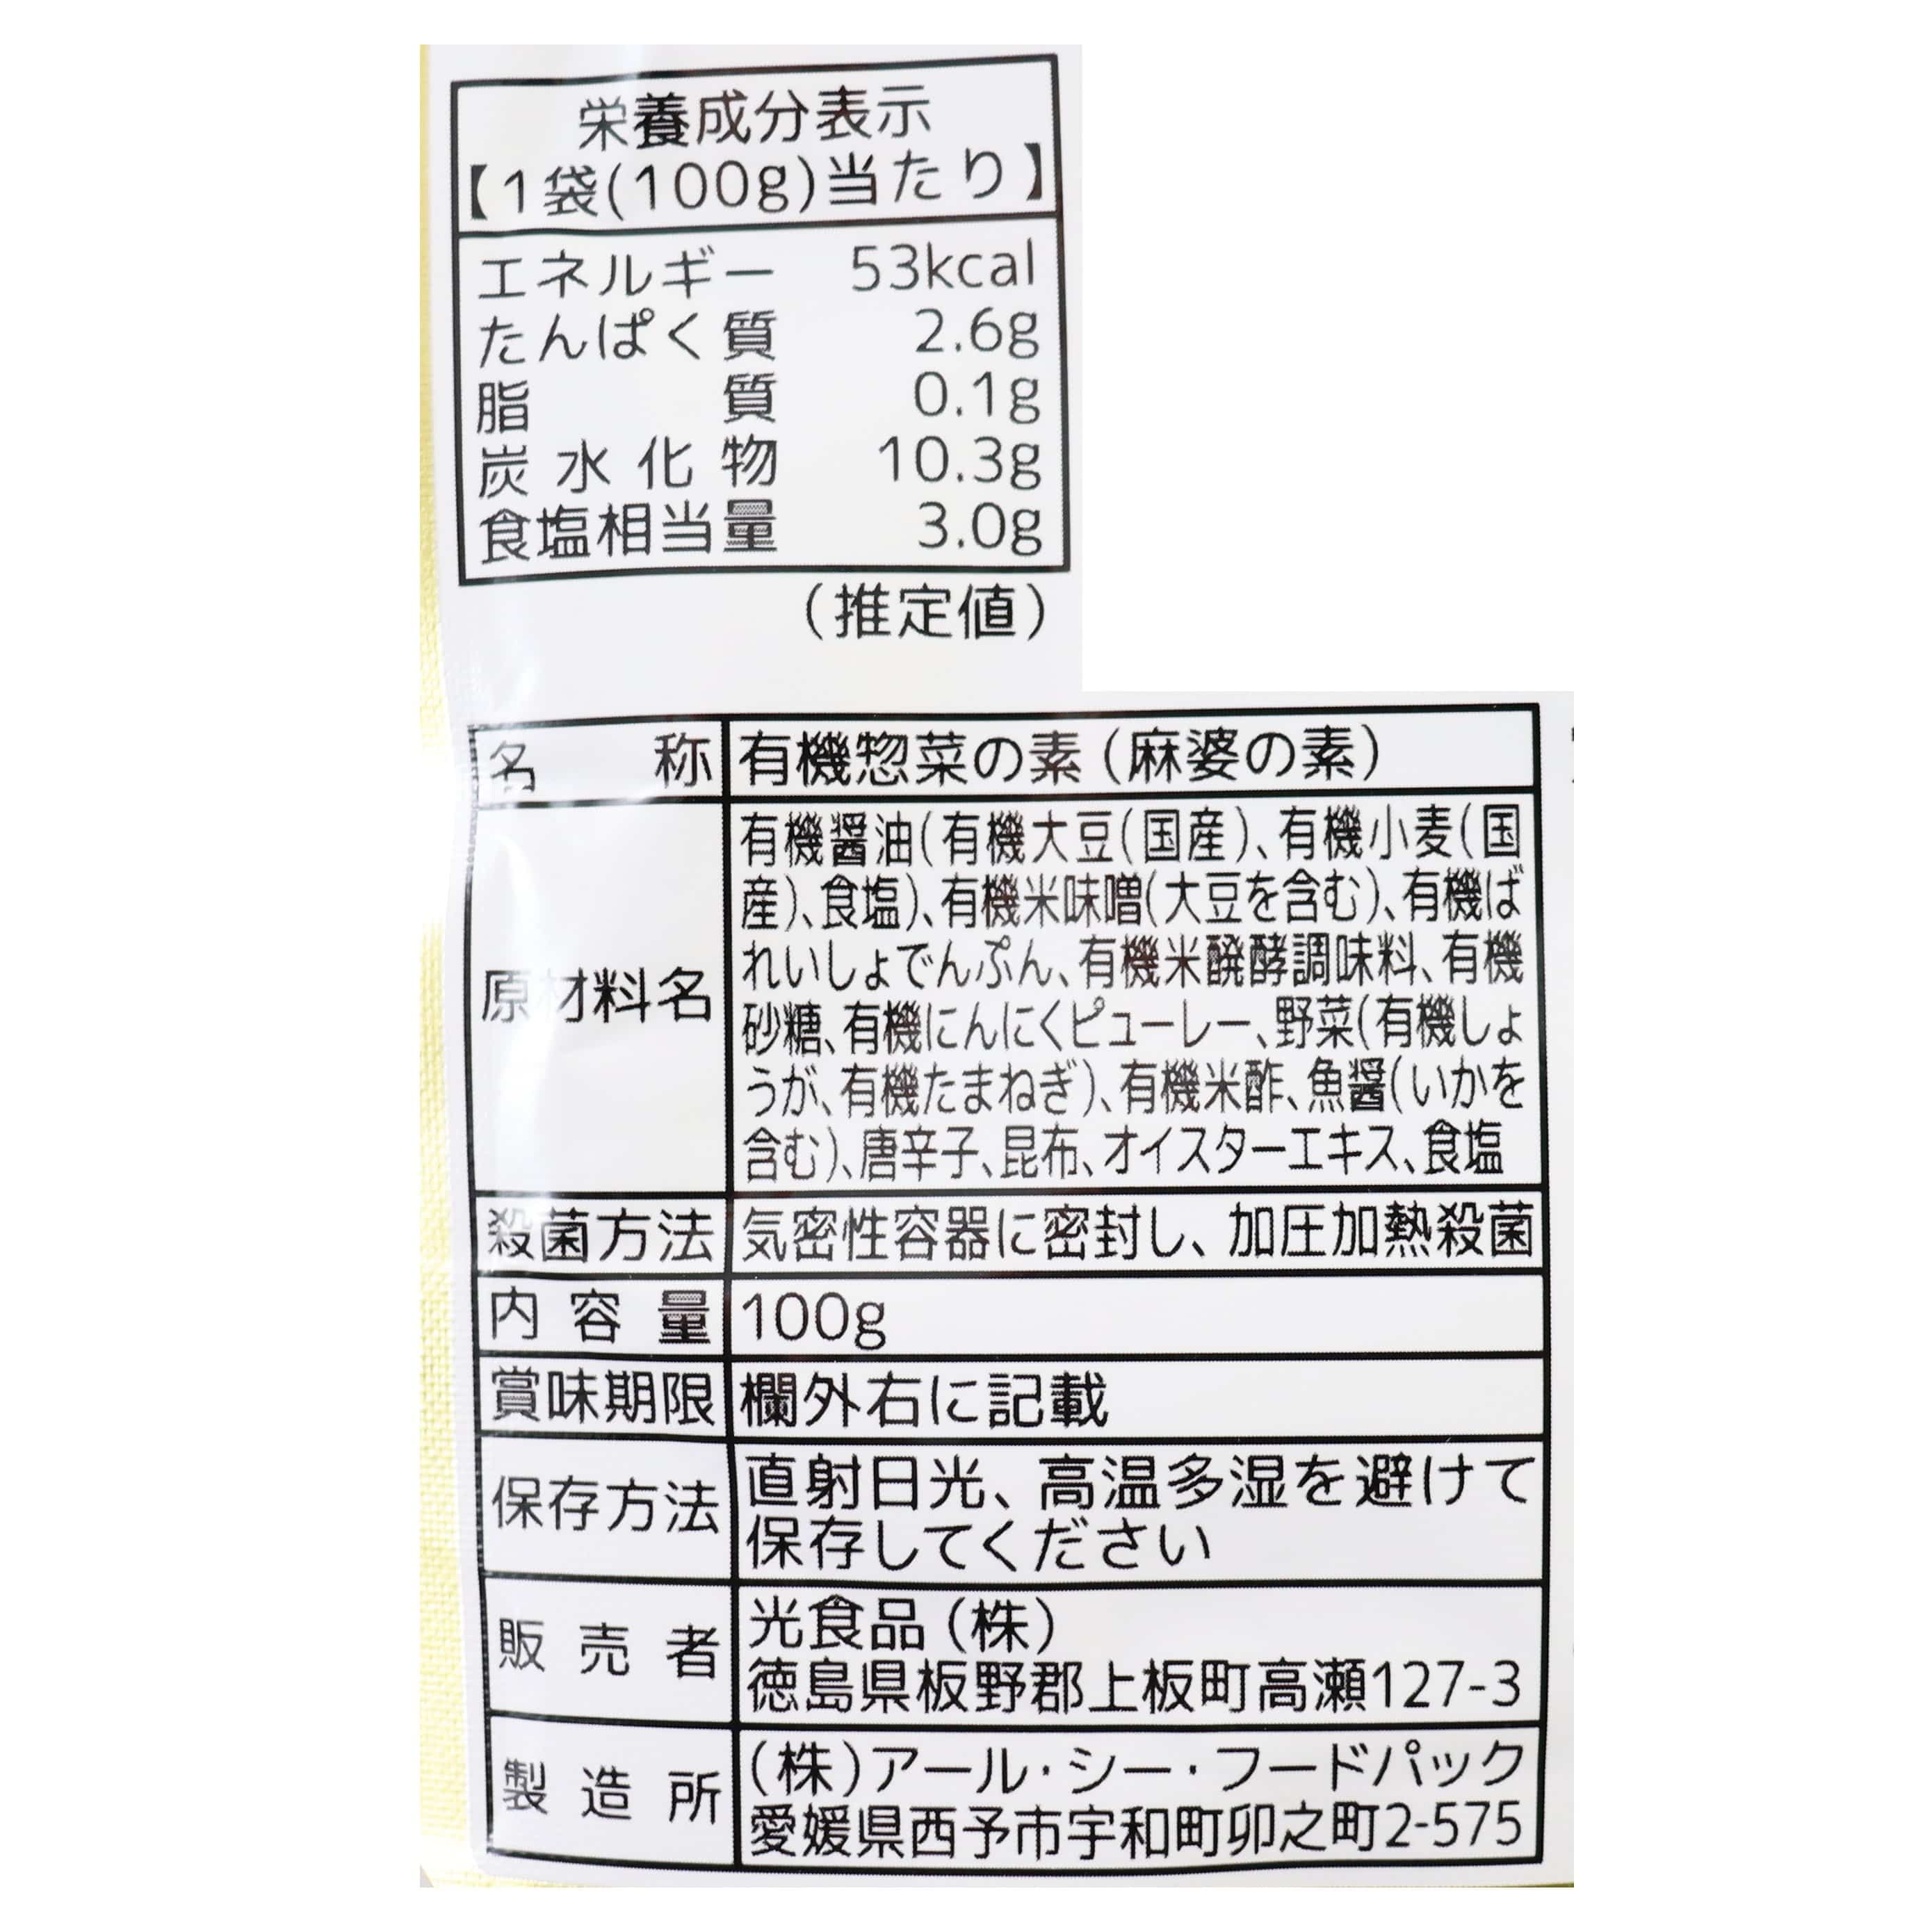 栄養成分表示
【1袋(100g)当たり】
エネルギー 53kcal
たんぱく質 2.6g
脂質 0.1g
炭水化物 10.3g
食塩相当量 3.0g
(推定値)
名称 有機惣菜の素(麻婆の素)
原材料名
有機醤油(有機大豆(国産)、有機小麦(国
産)、食塩)、有機米味噌(大豆を含む)、有機ば
れいしょでんぷん、有機米醗酵調味料、有機
砂糖、有機にんにくピューレー、野菜(有機しょ
うが、有機たまねぎ)、有機米酢、魚醤(いかを
含む)、唐辛子、昆布、オイスターエキス、食塩
殺菌方法 気密性容器に密封し、加圧加熱殺菌
内容量 100g
賞味期限 欄外右に記載
保存方法
直射日光、高温多湿を避けて
保存してください
販売者
光食品(株)
徳島県板野郡上板町高瀬127-3
製造所
(株)アール・シー・フードパック
愛媛県西予市宇和町卯之町2-575